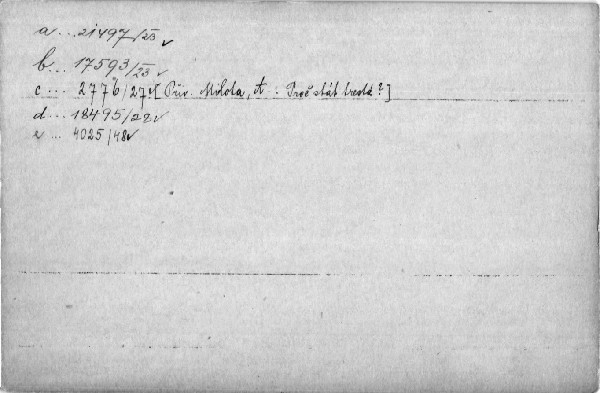 a ... 21497/23 ✓
b ... 17593/23 ✓
c ... 2776/27 ✓ [Přív. Milota, A.: Proč stát trestá?]
d ... 18495/28 ✓
e ... 4025/48 ✓